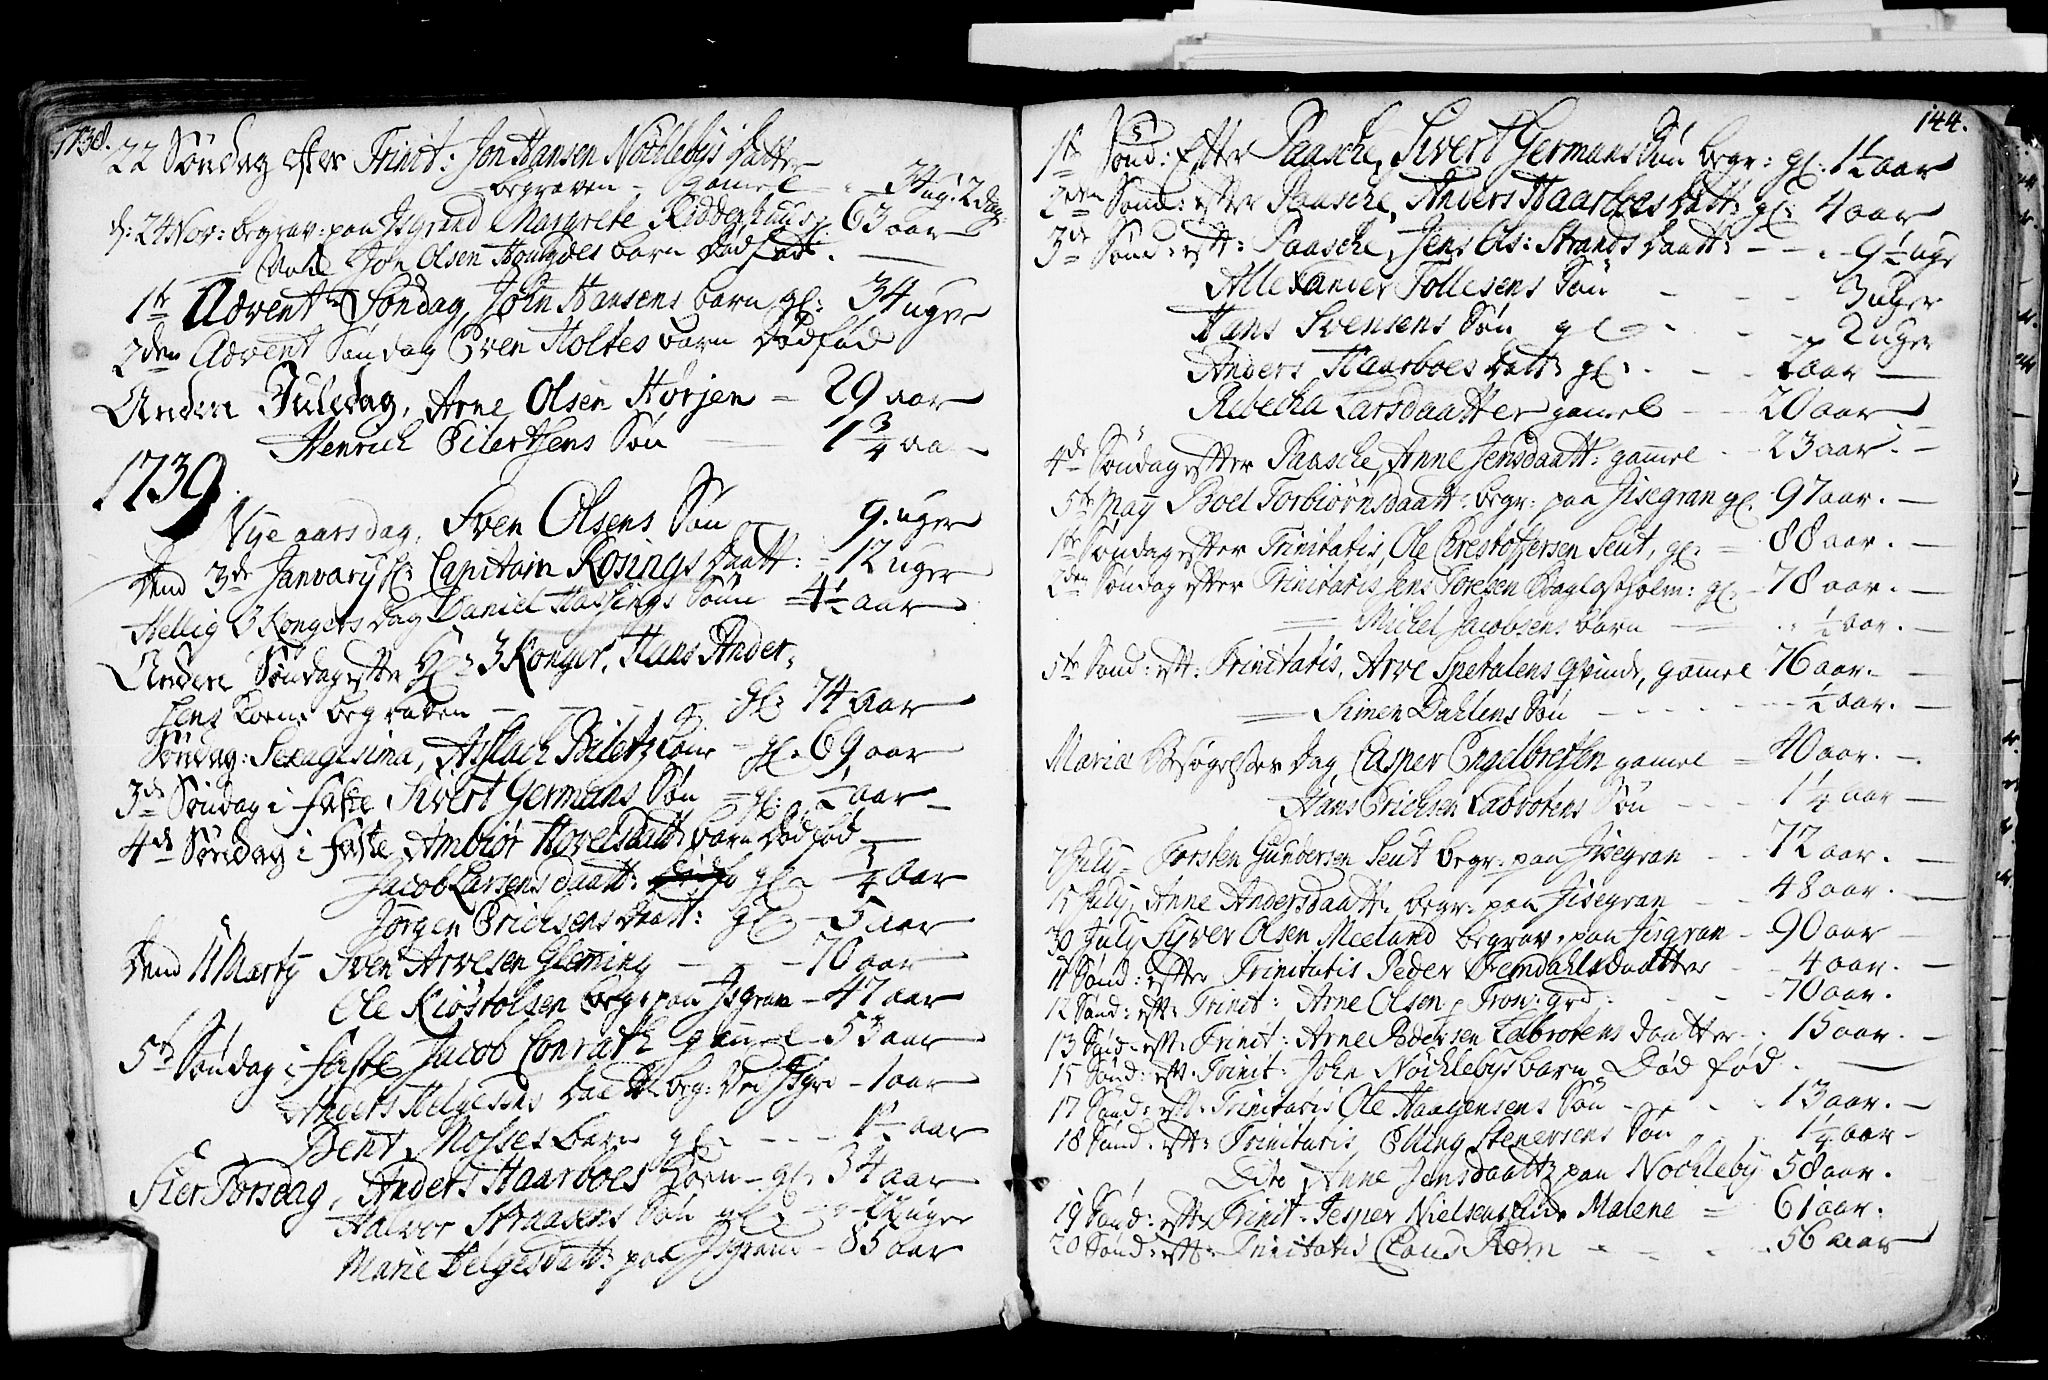 1738.
22 Søndag efter Trinit: Jon Hansen Nöchlebÿs datter
begraven - gamel - 3 ug. 2 dag.
d: 24 Nov: begrav: paa Isgrand Margrete Ridderhuus gl. 63 aar
Jon Olsen barn dødfød.
1te Advents Søndag, John Hansens barn gl: 34 uger
2den Advent Søndag Even Holtes barn dødfød
Anden Juledag, Arne Olsen Horjen - 29 aar
Henrich Eilertsens Søn 1 3/4 aar
1739
Nÿe aarsdag, Sven Olsens Søn 9. uger
Dend 3de Januarÿ gl: Capitain Rosings Daatt: - 12 uger
Hellig 3 Kongers dag Daniel Søn - 4 1/2 aar
Anden Søndag efter Hl: 3 Konger, Hans Ander-
sens Kone begraven - gl: 74 aar
Søndag: Sexagesima, Aslach Kone - gl. 69 aar
3de Søndag i faste Sivert Germans Søn - gl: 1/2 aar
4de Søndag i faste Ambiør Hovelsdaatt: barn dødfød
Jacob Larsens daatt: gl: 1/4 aar
Jørgen Erichsens daatt: gl: - 5 aar
Dend 11 Martÿ Sven Arvesen Gleming - 70 aar
Ole Kiøstolsen begr. paa Isgran - 47 aar
5te Søndag i faste Jacob Conrath gamel - 53 aar
Anders Helgesens daatt: beg: ved Isgr: - 1 aar
Bent Mosses barn gl: - 1 1/2 aar
Skier Torsdag, Anders Haarboes Koen - gl: 34 aar
Halvor Søn gl: uger
Marie Helgesdatt: paa Isgrand - 85 aar
144.
1te Sønd: Efter Paasche, Sivert Germans Søn begr: gl: 1 1/2 aar
2den Sønd: efter Paasche, Anders Haarboes datt: gl: 4 aar
3de Sønd: eft: Paasche, Jens Ols: Strands daatt: - 9 1/2 uge
Allexander Tollesens Søn - 3 uger
Hans Svensens Søn gl - 2 uger
Anders Haarboes datt: gl: - 2 aar
Rebecha Larsdaatter gamel - 20 aar
4de Søndag efter Paasche, Anne Jensdaatt: gamel - 23 aar. -
5te Maÿ Boel Torbiørnsdaatt: begr: paa Jisegran gl. 97 aar. -
1te Søndag efter Trinitatis, Ole Christoffersen Leut, gl: - 88 aar. -
2den Søndag efter Trinitatis Jens Toresen gl: - 78 aar. -
Michel Jacobsens barn - 1/2 aar. -
5te Sønd: eft: Trinitatis, Arve Spetalens Qvinde, gamel 76 aar. -
Simen Dahlens Søn - 1/2 aar. -
Mariæ Besøgelses dag, Casper Engelbretsen gamel - 40 aar. -
Hans Erichsen Labrotens Søn - 1 1/4 aar -
7 Julÿ - Torsten Gundersen Leut begr: paa Jisegran - 72 aar. -
15 Julÿ, Anne Andersdaatt: begr: paa Jisegran - 48 aar. -
30 Julÿ Siver Olsen Meeland begrav: paa Jisgran - 90 aar -
11 Sønd: efter Trinitatis Peder Femdahls daatter - 4 aar. -
12 Sønd: eft: Trinit: Arne Olsen - 70 aar.
13 Sønd: eft: Trinit: Arne Pedersen Labrotens daatter - 15 aar. -
15 Sønd: eft: Trinit: John Nöchlebÿs barn Død fød. -
17 Sønd: eft: Trinitatis Ole Haagensens Søn - 13 aar. -
18 Sønd: eft: Trinitatis Elling Stenersens Søn - 1 1/4 aar -
Dito Anne Jensdaatt: paa Nöchlebÿ 58 aar.
19 Sønd: efter Trinit. Jesper Nielsens Malene = 61 aar.
20 Sønd: eft: Trinitatis Claus Rom - 56 aar